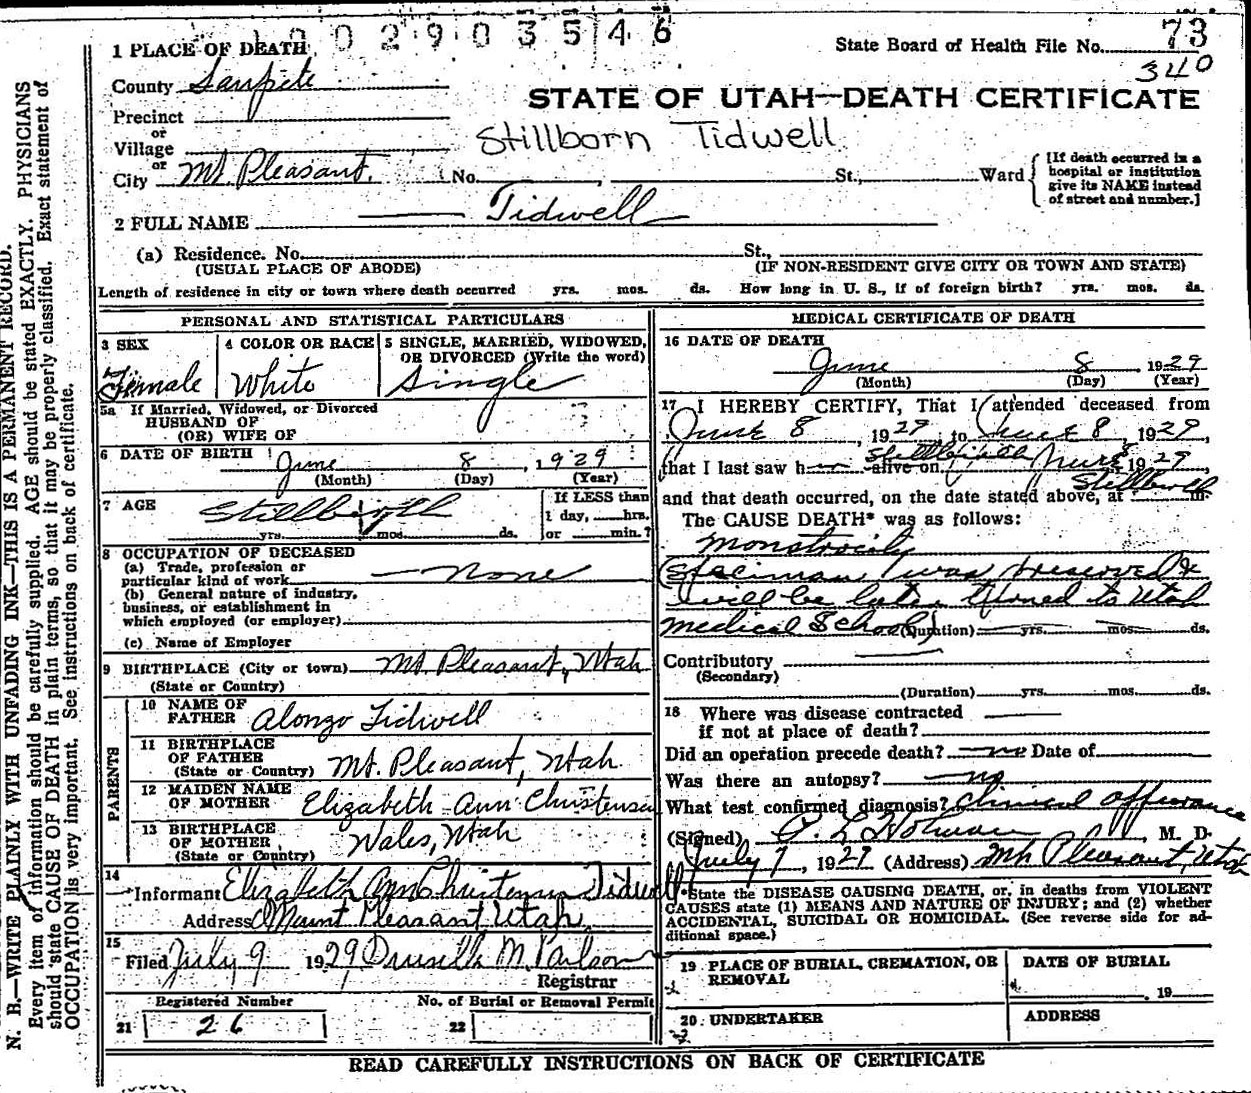 1 PLACE OF DEATH
0 0 2 9 0 3 5 4 6
State Board of Health File No. 73
340
County Sanpete
STATE OF UTAH—DEATH CERTIFICATE
Precinct
or
Village
Stillborn Tidwell
or
City Mt. Pleasant. No. , St., Ward
[If death occurred in a hospital or institution give its NAME instead of street and number.]
2 FULL NAME Tidwell
(a) Residence. No. St.,
(USUAL PLACE OF ABODE) (IF NON-RESIDENT GIVE CITY OR TOWN AND STATE)
Length of residence in city or town where death occurred yrs. mos. ds. How long in U. S., if of foreign birth? yrs. mos. ds.
PERSONAL AND STATISTICAL PARTICULARS
3 SEX 4 COLOR OR RACE 5 SINGLE, MARRIED, WIDOWED,
OR DIVORCED (Write the word)
Female White Single
5a If Married, Widowed, or Divorced
HUSBAND OF
(OR) WIFE OF
6 DATE OF BIRTH June 8, 1929
(Month) (Day) (Year)
7 AGE Stillbirth
If LESS than
1 day, hrs.
yrs. mos. ds. or min.?
8 OCCUPATION OF DECEASED
(a) Trade, profession or
particular kind of work None
(b) General nature of industry,
business, or establishment in
which employed (or employer)
(c) Name of Employer
9 BIRTHPLACE (City or town) Mt. Pleasant, Utah
(State or Country)
PARENTS
10 NAME OF
FATHER Alonzo Tidwell
11 BIRTHPLACE
OF FATHER
(State or Country) Mt. Pleasant, Utah
12 MAIDEN NAME
OF MOTHER Elizabeth Ann Christensen
13 BIRTHPLACE
OF MOTHER Wales, Utah
(State or Country)
14
Informant Elizabeth Ann Christensen Tidwell
Address Mount Pleasant Utah
15
Filed July 9 1929 Drusilla M.
Registrar
Registered Number No. of Burial or Removal Permit
21 26 22
MEDICAL CERTIFICATE OF DEATH
16 DATE OF DEATH
June 8, 1929
(Month) (Day) (Year)
17 I HEREBY CERTIFY, That I attended deceased from
June 8, 1929, to June 8, 1929,
that I last saw h alive on Stillbirth June 8, 1929,
and that death occurred, on the date stated above, at Stillbirth m
The CAUSE DEATH* was as follows:
Monstrocity
(Speciman was preserved &
will be later turned to Utah
Medical School) (Duration) yrs. mos. ds.
Contributory
(Secondary)
(Duration) yrs. mos. ds.
18 Where was disease contracted
if not at place of death?
Did an operation precede death? no Date of
Was there an autopsy? no
What test confirmed diagnosis? Clinical
(Signed) P. L. Holman M. D.
July 9, 1929 (Address) Mt Pleasant, Utah
*State the DISEASE CAUSING DEATH, or, in deaths from VIOLENT
CAUSES state (1) MEANS AND NATURE OF INJURY; and (2) whether
ACCIDENTAL, SUICIDAL OR HOMICIDAL. (See reverse side for ad-
ditional space.)
19 PLACE OF BURIAL, CREMATION, OR
REMOVAL
DATE OF BURIAL
, 19
20 UNDERTAKER ADDRESS
READ CAREFULLY INSTRUCTIONS ON BACK OF CERTIFICATE
N. B.—WRITE PLAINLY WITH UNFADING INK—THIS IS A PERMANENT RECORD.
Every item of information should be carefully supplied. AGE should be stated EXACTLY. PHYSICIANS
should state CAUSE OF DEATH in plain terms, so that it may be properly classified. Exact statement of
OCCUPATION is very important. See instructions on back of certificate.